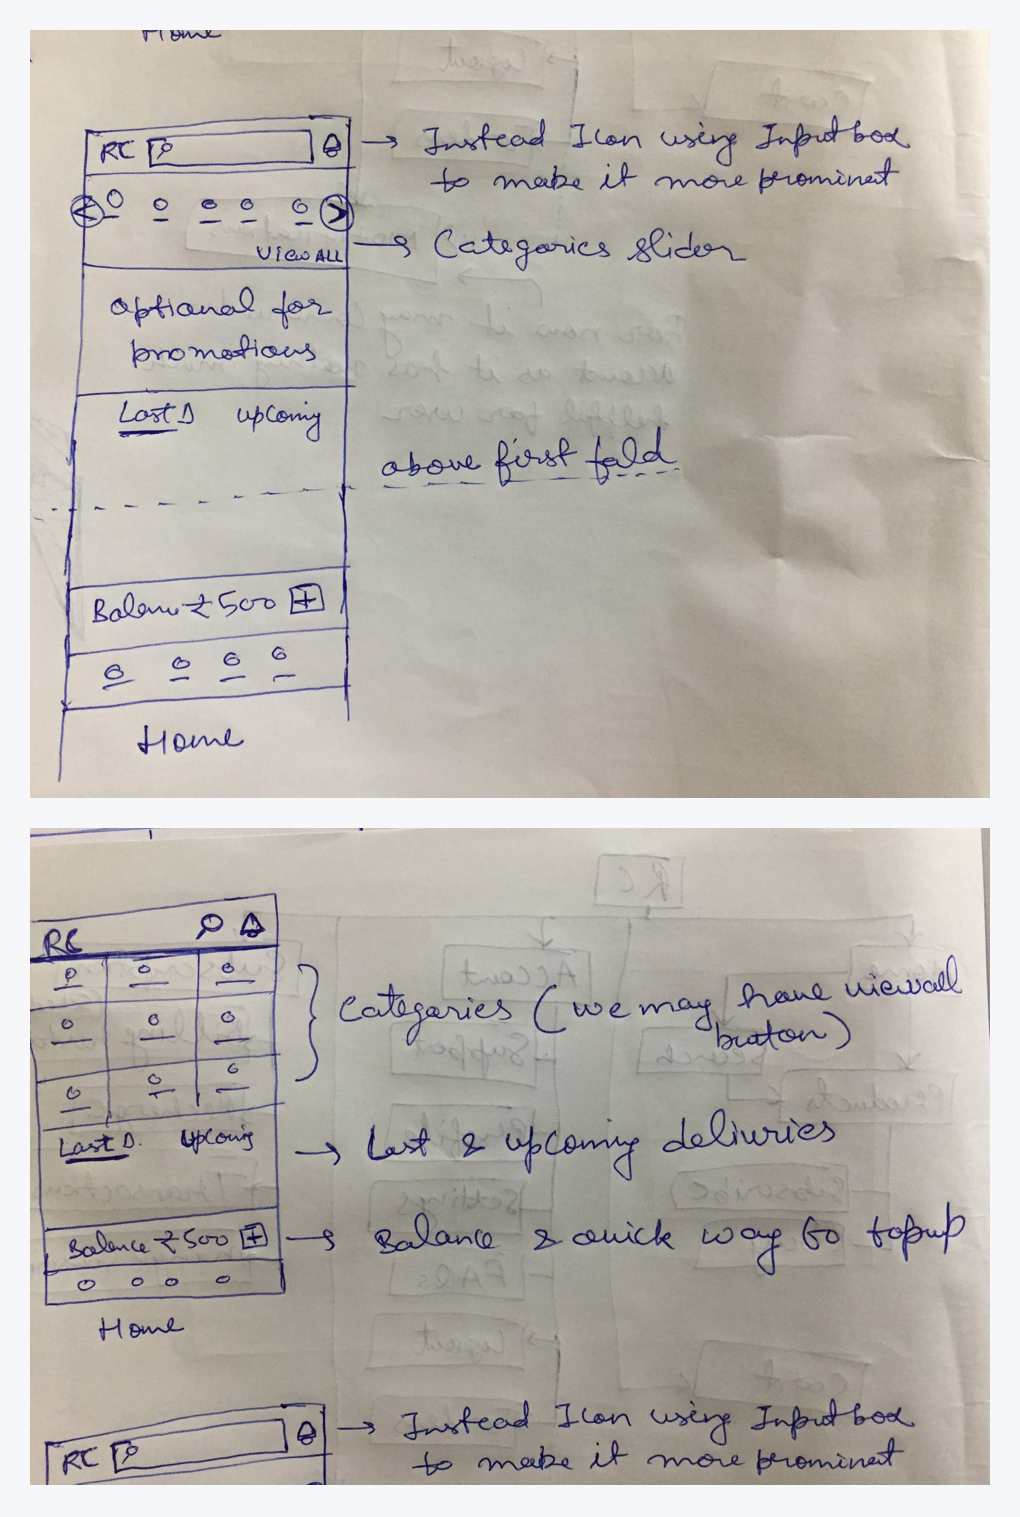 Home
RC
Instead Icon using Input box
to make it more prominent
VIEW ALL
Categories slider
optional for
promotions
Last D upcoming
above first fold
Balance ₹500 +
Home
RC
Categories (we may have viewall
button)
Last D. upcoming
Last & upcoming deliveries
Balance ₹500 +
Balance & quick way to topup
Home
RC
Instead Icon using Input box
to make it more prominent